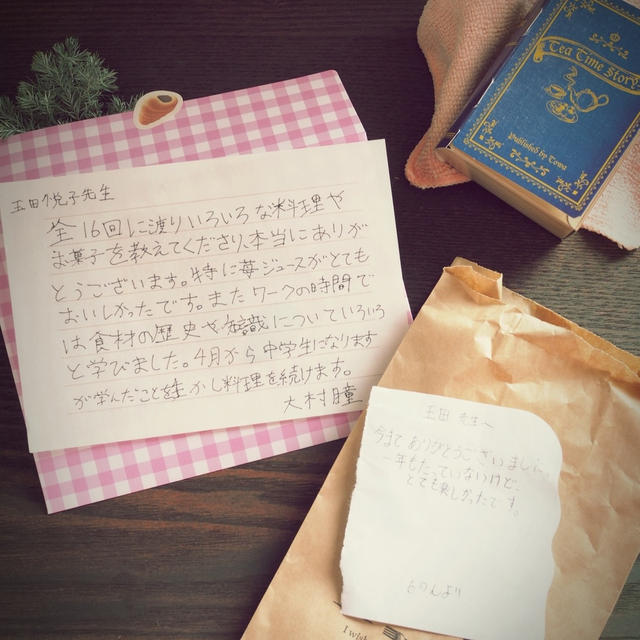 玉田悦子先生
全16回に渡りいろいろな料理や
お菓子を教えてくださり、本当にありが
とうございます。特に苺ジュースがとても
おいしかったです。またワークの時間で
は食材の歴史や知識についていろいろ
と学びました。4月から中学生になります
が学んだこと生かし料理を続けます。
大村瞳
Tea Time Story
published by Crowa
玉田 先生へ
今まで ありがとうございました。
一年もたっていないけど、
とても楽しかったです。
より
I wish